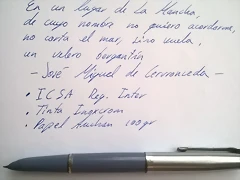 En un lugar de La Mancha,
de cuyo nombre no quiero acordarme,
no corta el mar, sino vuela,
un velero bergantín
- José Miguel de Cerronceda -
• ICSA Reg. Inter
• Tinta Ingxcrom
• Papel Auchan 100gr